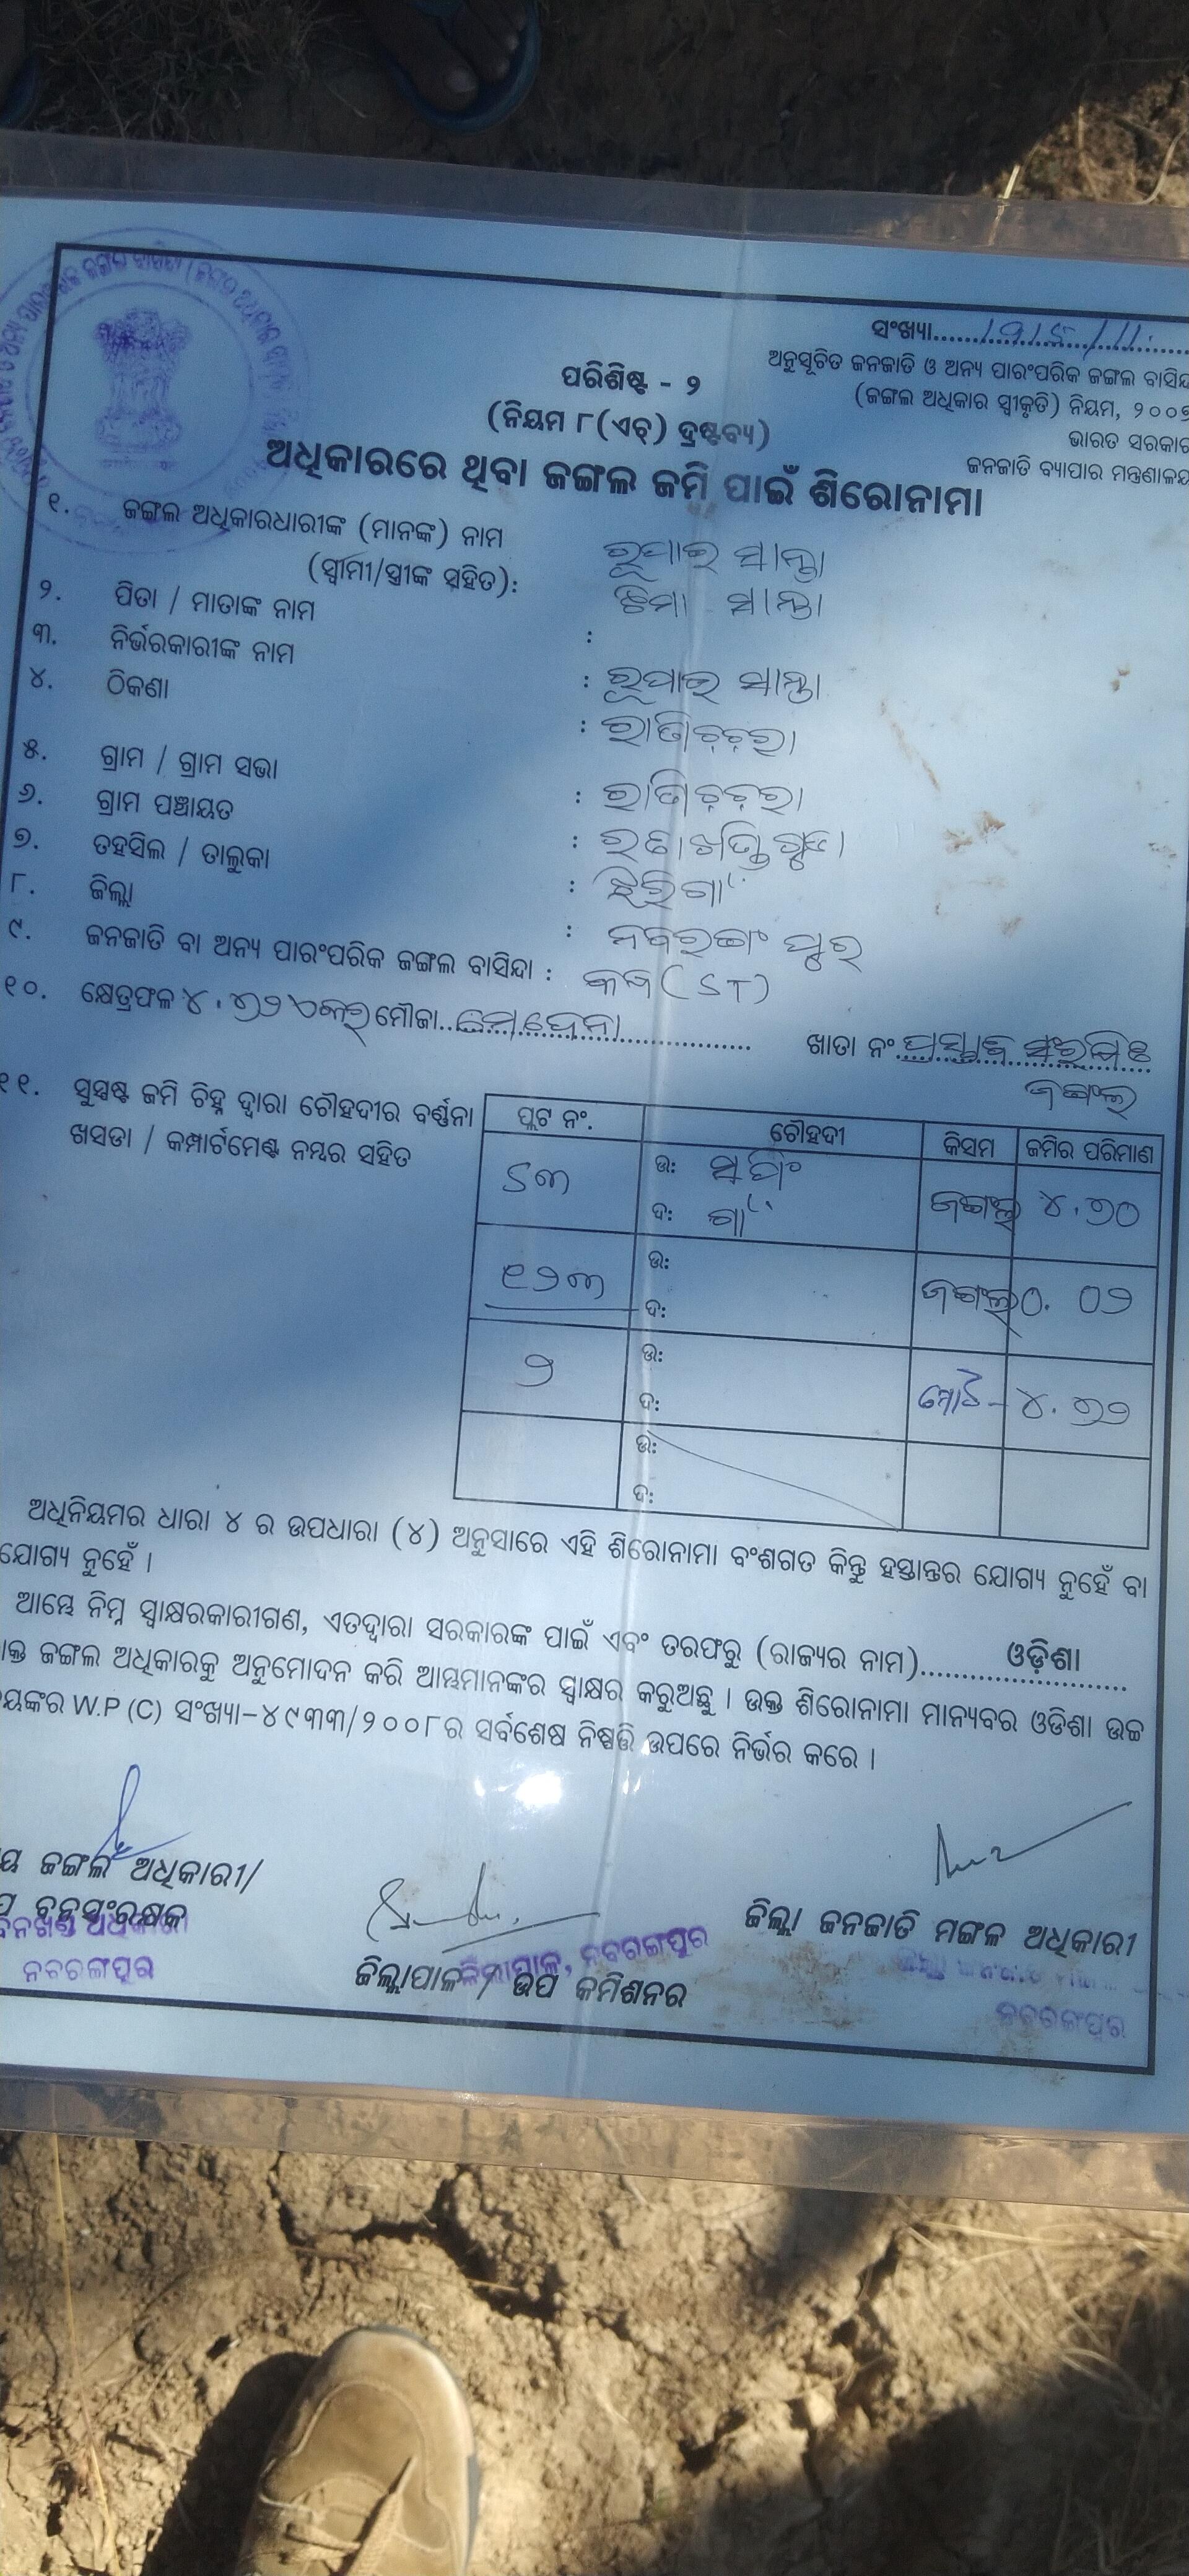 ସଂଖ୍ୟା
ଅନୁସୂଚିତ ଜନଜାତି ଓ ଅନ୍ୟ ପାରଂପରିକ ଜଙ୍ଗଲ ବାସିନ୍ଦା
(ଜଙ୍ଗଲ ଅଧିକାର ସ୍ୱୀକୃତି) ନିୟମ, ୨୦୦୭
ଭାରତ ସରକାର
ଜନଜାତି ବ୍ୟାପାର ମନ୍ତ୍ରଣାଳୟ
ପରିଶିଷ୍ଟ - ୨
(ନିୟମ ୮(ଏଚ୍) ଦ୍ରଷ୍ଟବ୍ୟ)
ଅଧିକାରରେ ଥିବା ଜଙ୍ଗଲ ଜମି ପାଇଁ ଶିରୋନାମା
୧. ଜଙ୍ଗଲ ଅଧିକାରଧାରୀଙ୍କ (ମାନଙ୍କ) ନାମ ରୂପାଇ ସାନ୍ତା
(ସ୍ୱାମୀ/ସ୍ତ୍ରୀଙ୍କ ସହିତ):
୨. ପିତା / ମାତାଙ୍କ ନାମ : ସାନ୍ତା
୩. ନିର୍ଭରକାରୀଙ୍କ ନାମ : ରୂପାଇ ସାନ୍ତା
୪. ଠିକଣା :
୫. ଗ୍ରାମ / ଗ୍ରାମ ସଭା :
୬. ଗ୍ରାମ ପଞ୍ଚାୟତ :
୭. ତହସିଲ / ତାଲୁକା : ଝରିଗାଁ
୮. ଜିଲ୍ଲା : ନବରଙ୍ଗପୁର
୯. ଜନଜାତି ବା ଅନ୍ୟ ପାରଂପରିକ ଜଙ୍ଗଲ ବାସିନ୍ଦା : (ST)
୧୦. କ୍ଷେତ୍ରଫଳ ୪.୭୨ ଏକର ମୌଜା ଖାତା ନଂ ପ୍ରସ୍ତାବ ସଂରକ୍ଷିତ
ଜଙ୍ଗଲ
୧୧. ସୁସ୍ପଷ୍ଟ ଜମି ଚିହ୍ନ ଦ୍ୱାରା ଚୌହଦୀର ବର୍ଣ୍ଣନା
ଖସଡା / କମ୍ପାର୍ଟମେଣ୍ଟ ନମ୍ବର ସହିତ
ପ୍ଲଟ ନଂ. ଚୌହଦୀ କିସମ ଜମିର ପରିମାଣ
ଉ: ଜଙ୍ଗଲ ୪.୭୦
ଦ:
୧୨୩ ଉ: ଜଙ୍ଗଲ ୦.୦୨
ଦ:
୨ ଉ: ମୋଟ- ୪.୭୨
ଦ:
ଉ:
ଦ:
ଅଧିନିୟମର ଧାରା ୪ ର ଉପଧାରା (୪) ଅନୁସାରେ ଏହି ଶିରୋନାମା ବଂଶଗତ କିନ୍ତୁ ହସ୍ତାନ୍ତର ଯୋଗ୍ୟ ନୁହେଁ ବା
ଯୋଗ୍ୟ ନୁହେଁ ।
ଆମ୍ଭେ ନିମ୍ନ ସ୍ୱାକ୍ଷରକାରୀଗଣ, ଏତଦ୍ୱାରା ସରକାରଙ୍କ ପାଇଁ ଏବଂ ତରଫରୁ (ରାଜ୍ୟର ନାମ) ଓଡ଼ିଶା
ଜଙ୍ଗଲ ଅଧିକାରକୁ ଅନୁମୋଦନ କରି ଆମ୍ଭମାନଙ୍କର ସ୍ୱାକ୍ଷର କରୁଅଛୁ । ଉକ୍ତ ଶିରୋନାମା ମାନ୍ୟବର ଓଡିଶା ଉଚ୍ଚ
W.P (C) ସଂଖ୍ୟା-୪୯୩୩/୨୦୦୮ର ସର୍ବଶେଷ ନିଷ୍ପତ୍ତି ଉପରେ ନିର୍ଭର କରେ ।
ଜଙ୍ଗଲ ଅଧିକାରୀ/
ବନସଂରକ୍ଷକ
ନବରଙ୍ଗପୁର
ଜିଲ୍ଲାପାଳ, ନବରଙ୍ଗପୁର
ଜିଲ୍ଲାପାଳ / ଉପ କମିଶନର
ଜିଲ୍ଲା ଜନଜାତି ମଙ୍ଗଳ ଅଧିକାରୀ
ନବରଙ୍ଗପୁର